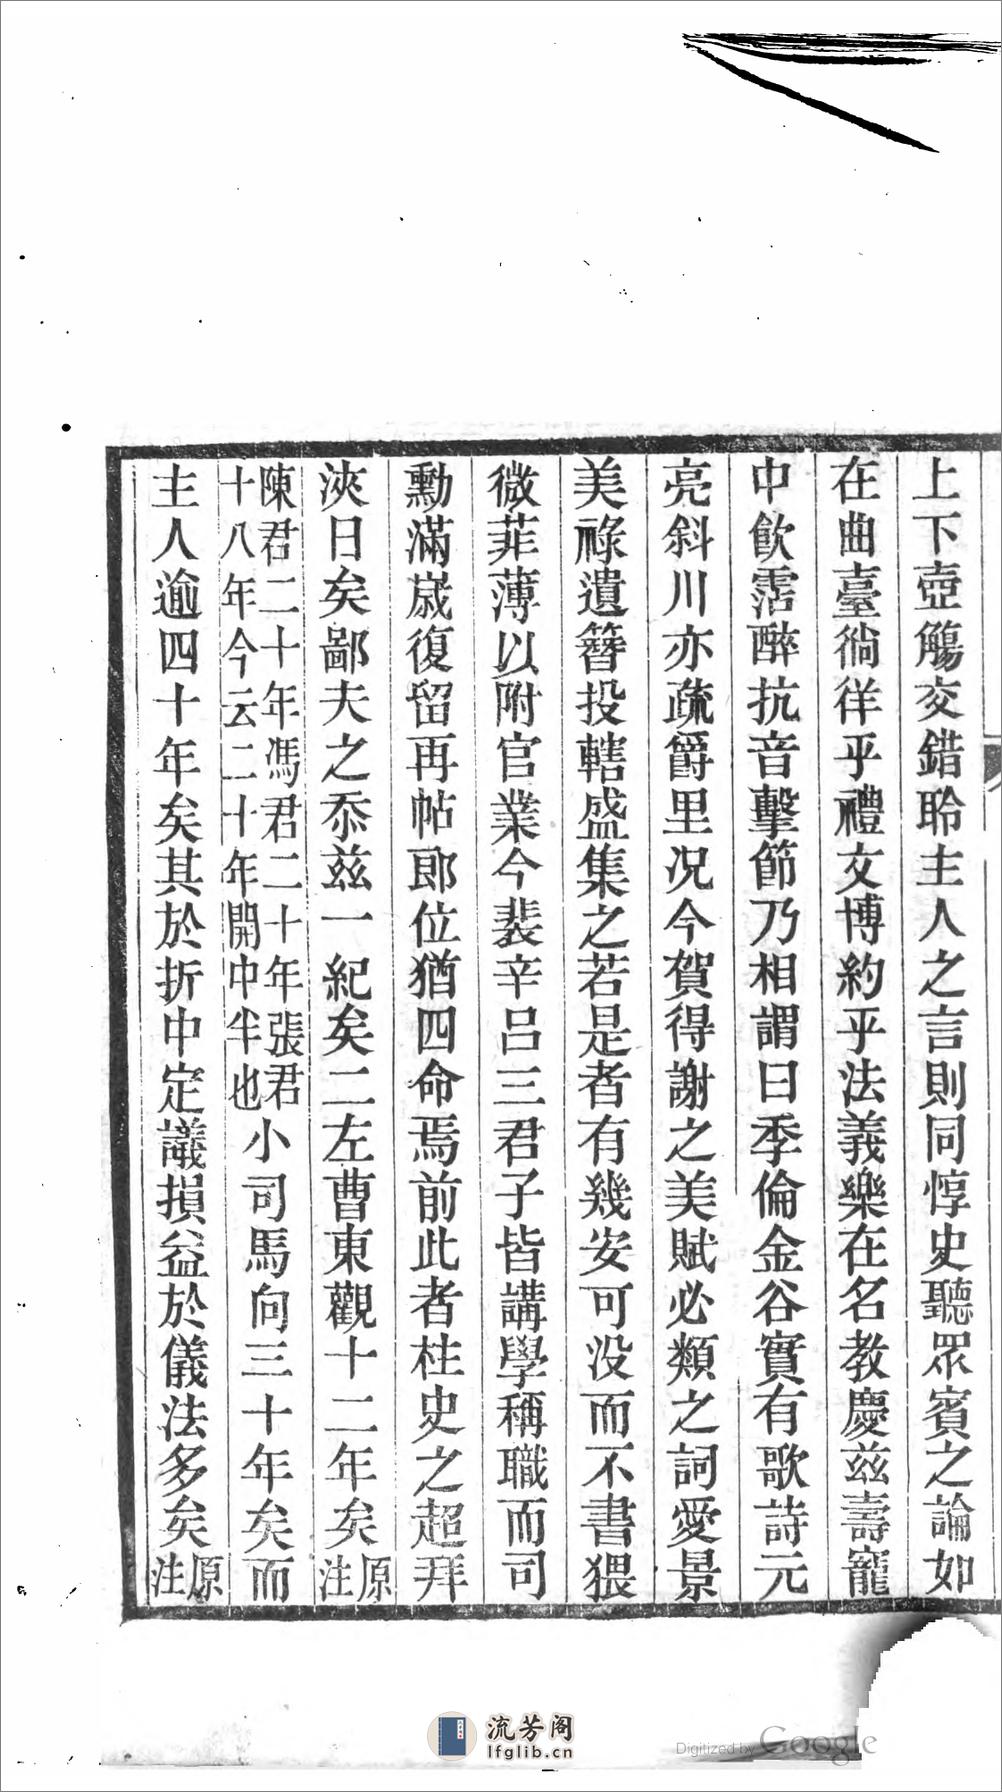 上下壺觴交錯聆主人之言則同惇史聽眾賓之論如
在曲臺徜徉乎禮文博約乎法義樂在名教慶茲壽寵
中飲霑醉抗音擊節乃相謂曰季倫金谷實有歌詩元
亮斜川亦疏爵里况今賀得謝之美賦必類之詞愛景
美祿遺簪投轄盛集之若是者有幾安可没而不書猥
微菲薄以附官業今裴辛呂三君子皆講學稱職而司
勳滿歲復留再帖郎位猶四命焉前此者柱史之超拜
浹日矣鄙夫之忝茲一紀矣二左曹東觀十二年矣原注
陳君二十年馮君二十年張君十八年今云二十年開中半也小司馬向三十年矣而
主人逾四十年矣其於折中定議損益於儀法多矣原注
流芳阁
lfglib.cn
Digitized by Google